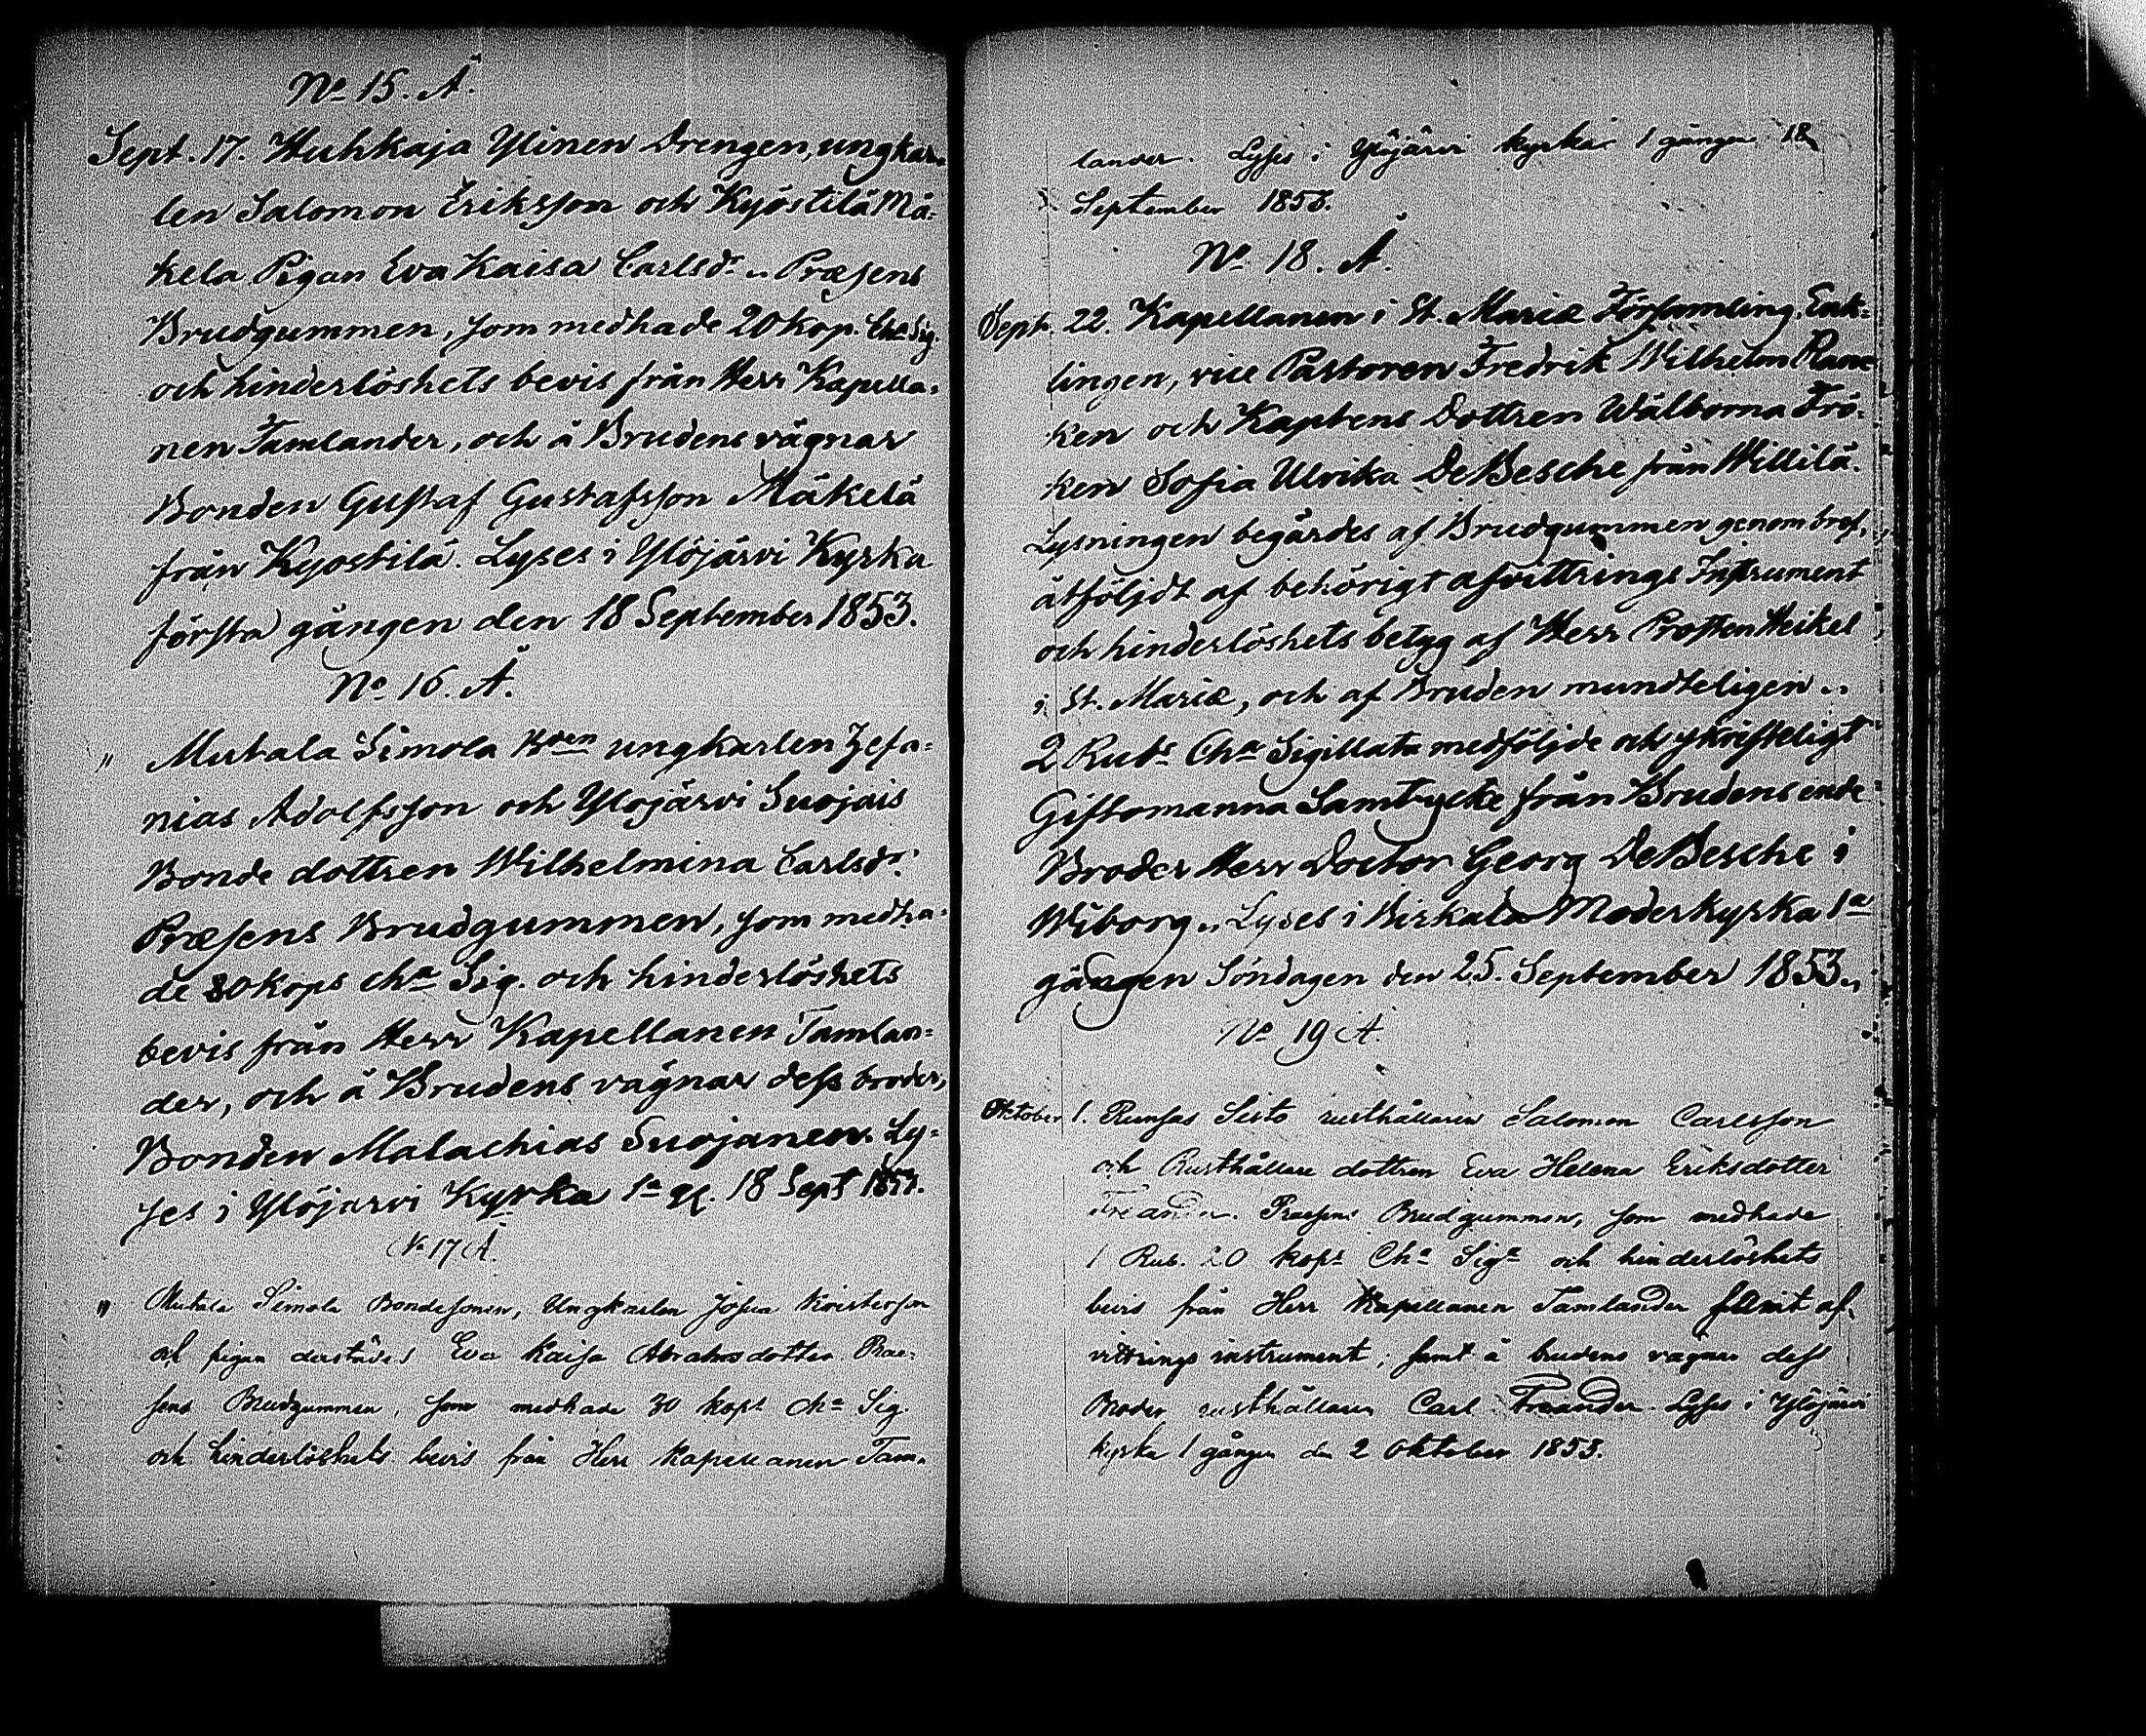 No 15. Å.
Sept. 17. Huhkaja Ylinen Drengen, ungkar-
len Salomon Eriksson och Kyöstilä Mä-
kela Pigan Eva Kaisa Carlsdr. Præsens
Brudgummen, som medhade 20 kop. Cha Sig.
och hinderlöshets bevis från Herr Kapella-
nen Tamlander, och å Brudens vägnar
Bonden Gustaf Gustafsson Mäkelä
från Kyöstilä. Lyses i Ylöjärvi Kyrka
första gången den 18 September 1853.
No 16. Å.
" Mutala Simola ungkarlen Zefa-
nias Adolfsson och Ylöjärvi Suojais
Bonde dottren Wilhelmina Carlsdr.
Præsens Brudgummen, som medha-
de 80 kops cha Sig. och hinderlöshets
bevis från Herr Kapellanen Tamlan-
der, och å Brudens vägnar dess broder,
Bonden Malachias Suojanen. Ly-
ses i Ylöjärvi Kyrka 1a gg. 18 Sept 1853.
No 17 Å.
" Mutala Simola Bondesonen, Ungkarlen Josua Kristersson
och pigan derstädes Eva Kaisa Abrahsdotter. Præ-
sens Brudgummen, som medhade 30 kops cha Sig.
och hinderlöshets bevis från Herr Kapellanen Tam-
lander. Lyses i Ylöjärvi kyrka 1 gången 18
September 1853.
No 18. Å.
Sept. 22. Kapellanen i St. Mariæ Församling, Enk-
lingen, vice Pastoren Fredrik Wilhelm
och Kaptens Dottren Wälborna Frö-
ken Sofia Ulrika De Besche från Willilä.
Lysningen begärdes af Brudgummen genom bref,
åtföljdt af behörigt afvittrings Instrument
och hinderlöshets betyg af Herr Prosten Heikel
i St. Mariæ, och af Bruden mundteligen.
2 Rubs Cha Sigillata medföljde och skrifteligt
Giftomanna Samtycke från Brudens ende
Broder Herr Doctor Georg De Besche i
Wiborg. Lyses i Birkala Moderkyrka 1a
gången Söndagen den 25. September 1853.
No 19 Å.
Oktober 1. Runsas Sisto rusthållaren Salomon Carlsson
och Rusthållare dottren Eva Helena Eriksdotter
Freander. Præsens Brudgummen, som medhade
1 Rub. 20 kops Cha Siga och hinderlöshets
bevis från Herr Kapellanen Tamlander samt af-
vittrings instrument, samt å brudens vägnar dess
Broder rusthållaren Carl Freander. Lyses i Ylöjärvi
kyrka 1 gången den 2 Oktober 1853.